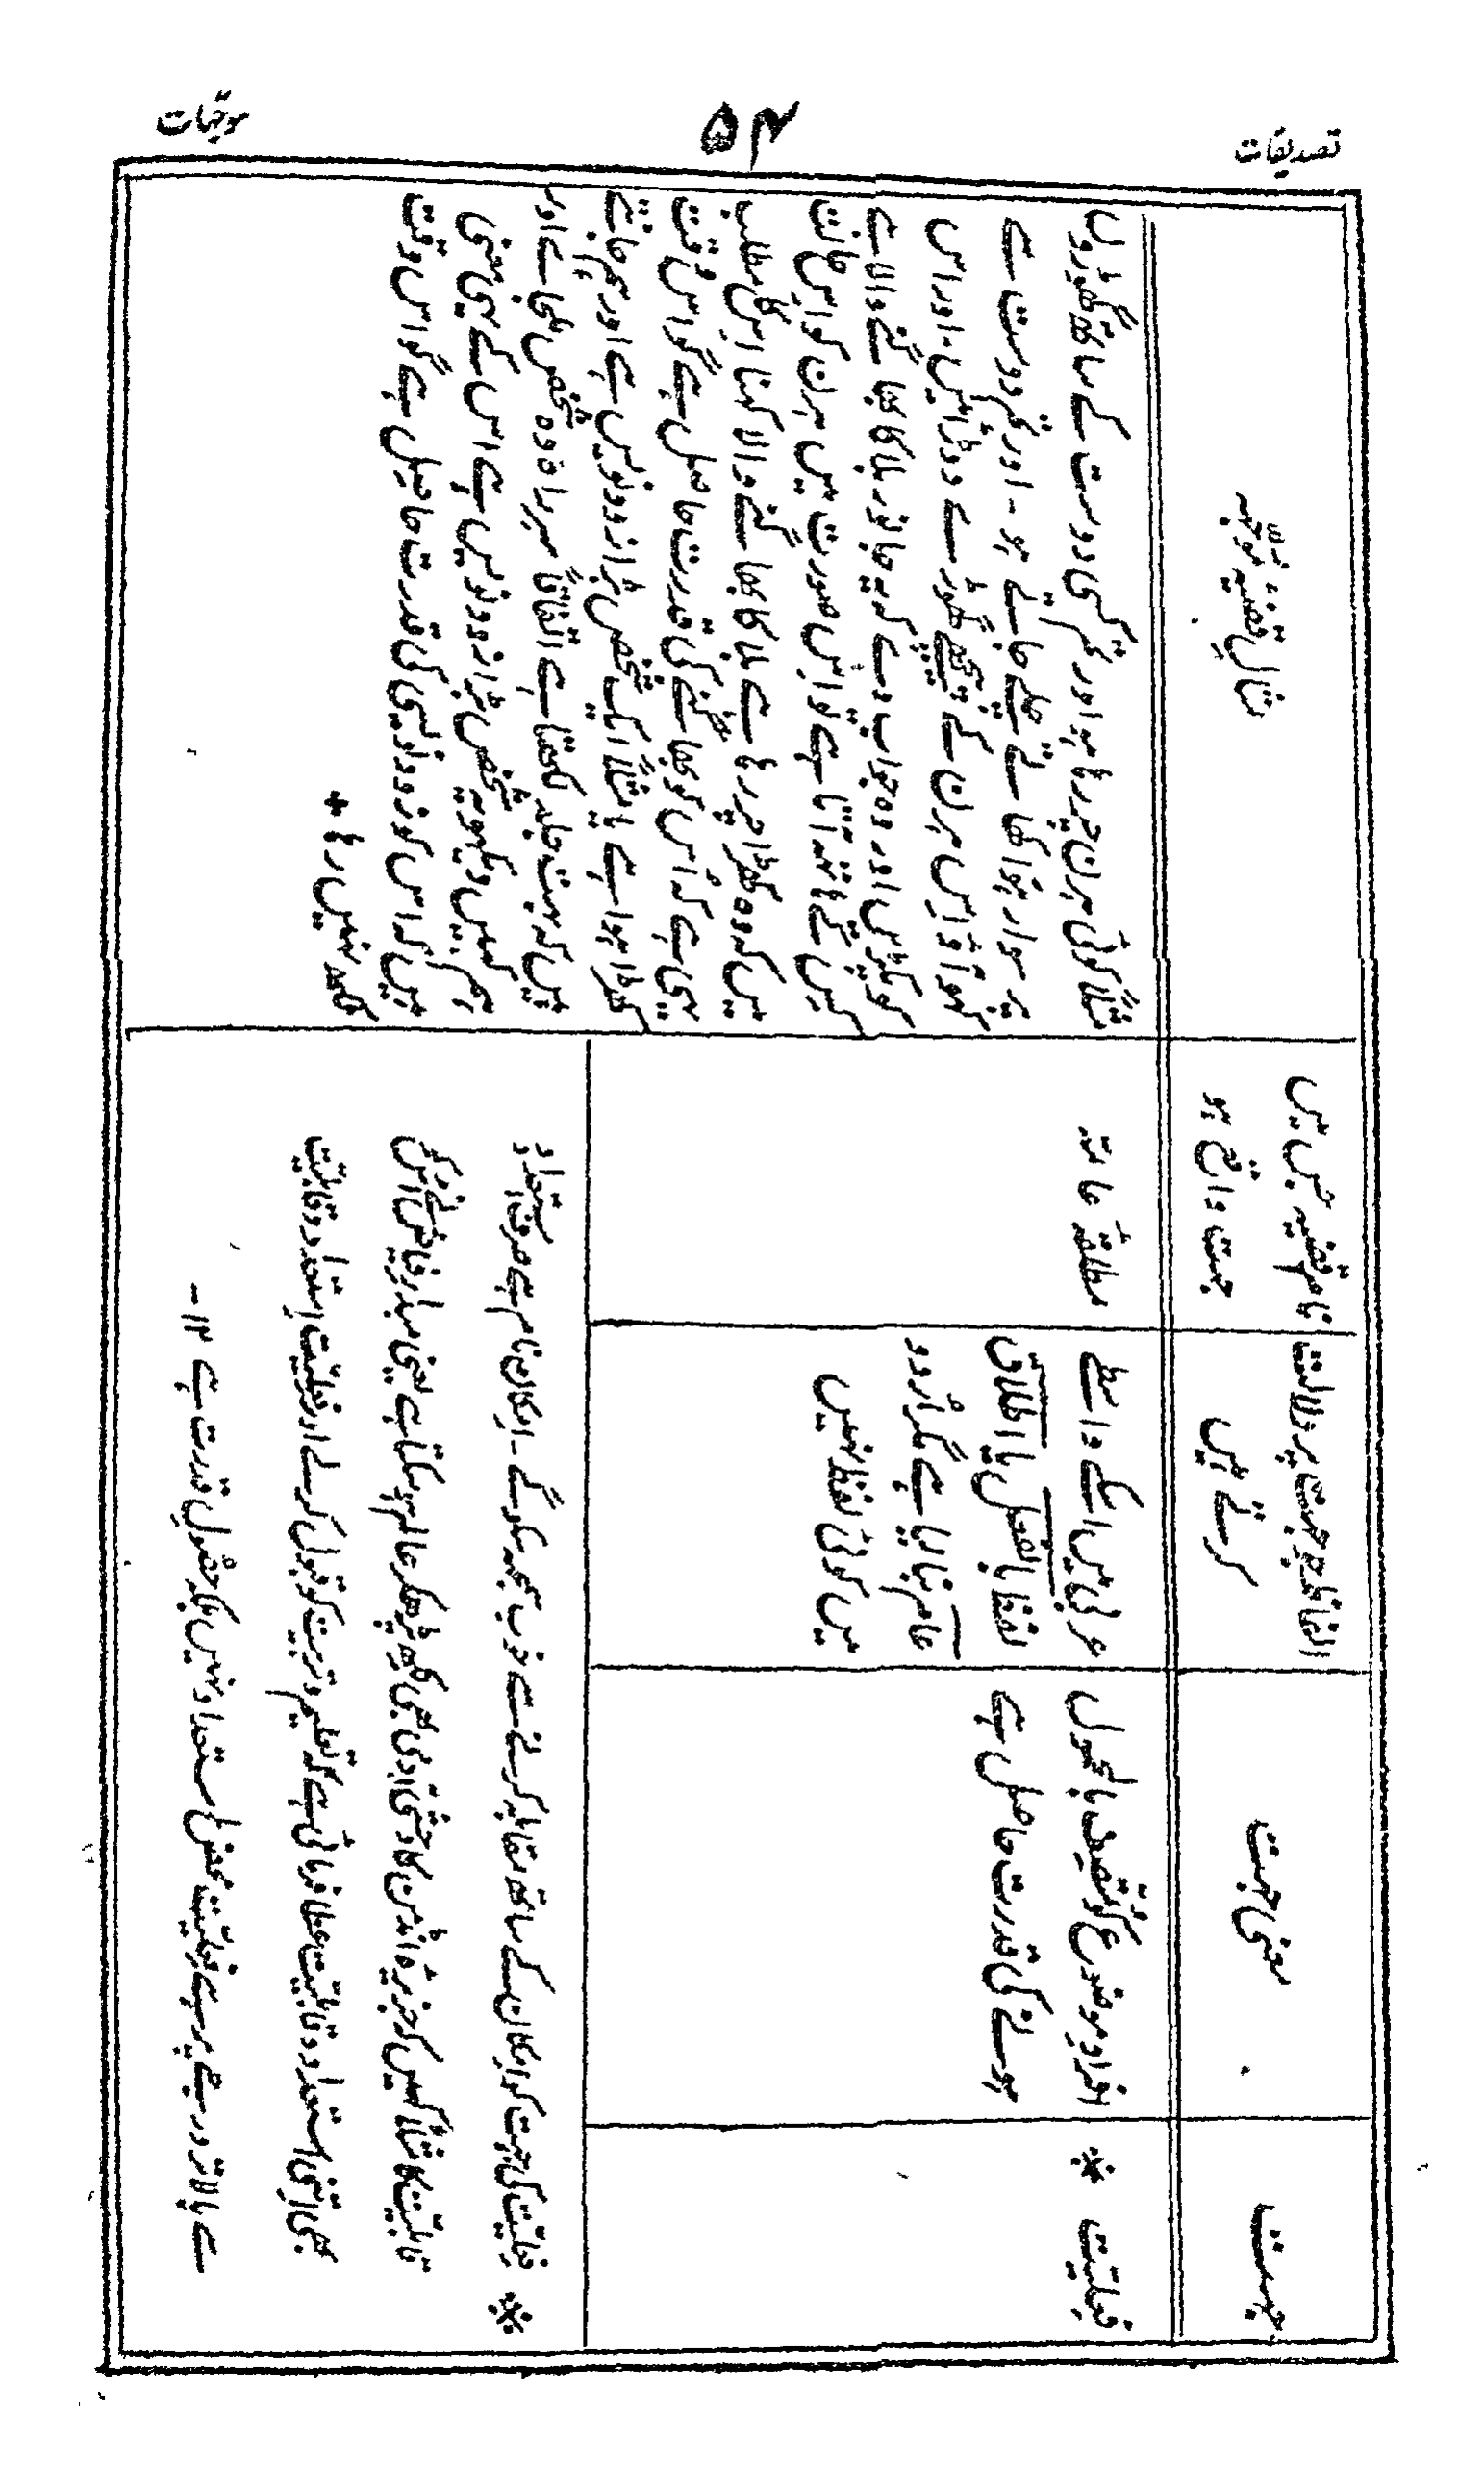 تصدیقات
۵۴
موجّہات
جہت
معنی جہت
الفاظ جو جہت پر دلالت
کرتے ہیں
نام قضیہ جس میں
جہت واقع ہو
مثال قضیہ موجّہہ
فعلیّت *
افراد موضوع کو متّصف بالمحمول
ہونے کی قدرت حاصل ہے
عربی میں اسکے واسطے
لفظ بالفعل یا اطلاق
عام بنالیا ہے مگر اُردو
میں کوئی لفظ نہیں
مطلقہ عامّہ
مثلاً کوئی ہرن چر رہا ہو اور تم کسی دوست کے ساتھ گھوڑوں
پر سوار ہوا کھاتے چلے جاتے ہو ۔ اور تم دوست سے
کہو آؤ اس ہرن کے پیچھے گھوڑے دوڑائیں ۔ اور اس
کو پکڑیں اور وہ جواب دے کہ یہ جانور بلا کا بھاگنے والا ہے
کس کے ہاتھ آتا ہے تو اس صورت میں ہرن کو اس حالت
میں کہ وہ کھڑا چر رہا ہے بلا کا بھاگنے والا کہنا اس کا مطلب
یہی ہے کہ اُس کو بھاگنے کی قدرت حاصل ہے گو اس وقت
کھڑا ہوا ہے یا مثلاً ایک شخص بڑا زود نویس ہے اور ہم جانتے
ہیں کہ بہت جلد لکھتا ہے اتفاقاً سر راہ وہ شخص ملجائے اور
ہم کہیں دیکھو یہ شخص بڑا زود نویس ہے اس کے یہی معنی
ہیں کہ اس کو زود نویسی کی قدرت حاصل ہے گو اس وقت
لکھ نہیں رہا *
* فعلیّت کی جہت کو امکان کے ساتھ مقابلہ کرنے سے خوب سمجھ سکو گے ۔ امکان نام ہے صرف استعداد
قابلیّت کا مثلاً کہیں کہ جزیرہ انڈمن کا وحشی آدمی بھی لکھ پڑھکر عالم ہو سکتا ہے یعنی مبدء فیاض نے اس کو
بھی اتنی استعداد و قابلیّت عطا فرمائی ہے کہ تعلیم و تربیت کو قبول کرلے اور فعلیّت استعداد و قابلیّت
سے بالاتر درجے پر ہے فعلیّت محض استعداد نہیں بلکہ حصول قدرت ہے ۱۲ ۔